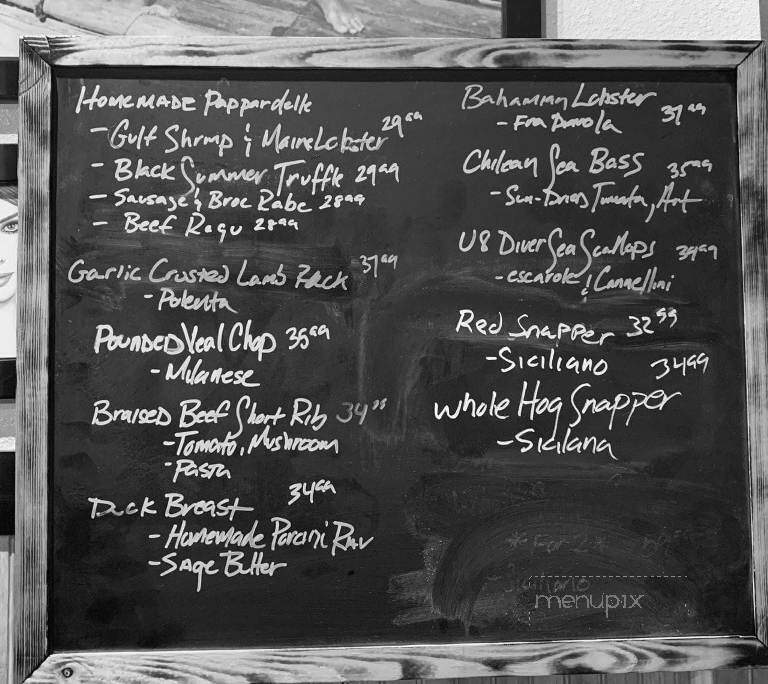 Homemade Pappardelle
- Gulf Shrmp & Maine Lobster 29⁹⁹
- Black Summer Truffle 29⁹⁹
- Sausage & Broc Rabe 28⁹⁹
- Beef Ragu 28⁹⁹
Garlic Crusted Lamb Rack 37⁹⁹
- Polenta
Pounded Veal Chop 35⁹⁹
- Milanese
Braised Beef Short Rib 34⁹⁹
- Tomato, Mushroom
- Pasta
Duck Breast 34⁹⁹
- Homemade Porcini Rav
- Sage Butter
Bahamian Lobster 37⁹⁹
- Fra Davola
Chilean Sea Bass 35⁹⁹
- Sun-Dried Tomato, Art
U8 Diver Sea Scallops 34⁹⁹
- escarole & Cannellini
Red Snapper 32⁹⁹
- Siciliano
34⁹⁹
Whole Hog Snapper
- Sicilana
* For 2 *
menupix